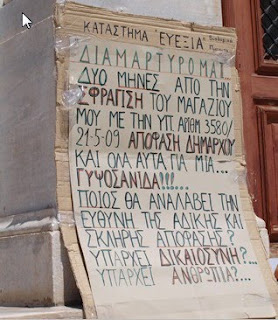 ΚΑΤΑΣΤΗΜΑ "ΕΥΕΞΙΑ"
ΔΙΑΜΑΡΤΥΡΟΜΑΙ
ΔΥΟ ΜΗΝΕΣ ΑΠΟ ΤΗΝ
ΣΦΡΑΓΙΣΗ ΤΟΥ ΜΑΓΑΖΙΟΥ
ΜΟΥ ΜΕ ΤΗΝ ΥΠ ΑΡΙΘΜ 3580/
21-5-09 ΑΠΟΦΑΣΗ ΔΗΜΑΡΧΟΥ
ΚΑΙ ΟΛΑ ΑΥΤΑ ΓΙΑ ΜΙΑ...
ΓΥΨΟΣΑΝΙΔΑ!!!.....
ΠΟΙΟΣ ΘΑ ΑΝΑΛΑΒΕΙ ΤΗΝ
ΕΥΘΥΝΗ ΤΗΣ ΑΔΙΚΗΣ ΚΑΙ
ΣΚΛΗΡΗΣ ΑΠΟΦΑΣΗΣ?
ΥΠΑΡΧΕΙ ΔΙΚΑΙΟΣΥΝΗ?...
ΥΠΑΡΧΕΙ ΑΝΘΡΩΠΙΑ?...